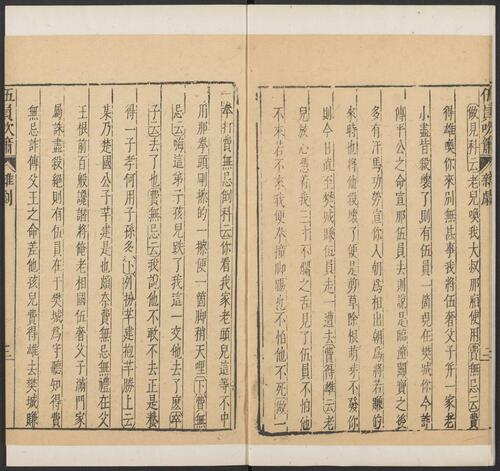 伍員吹簫 雜劇 三
做見科云老兒喚我大叔那廂使用費無忌云費
得雄喚你來別無甚事我將伍奢父子并一家老
小盡皆殺壞了則有伍員一箇現在樊城你今詐
傳平公之命宣那伍員去則說是臨潼鬬寶之後
多有汗馬功勞宣你入朝為相出朝為將若賺的
來時也將他殺壞了便是剪草除根萌芽不發你
則今日直至樊城賺伍員走一遭去費得雄云老
兒放心憑着我三寸不爛之舌見了伍員不怕他
不來若不來我便拳撞脚踢也不怕他不死做一
拳打費無忌倒科云你看我家老頭兒這等不中
用那拳頭剛擦的一擦便一箇脚稍天哩下費無
忌云嗨這弟子孩兒跌了我這一交他去了麽卒
子云去了也費無忌云我說他不敢不去正是養
得一子孝何用子孫多下外扮羋建抱羋勝上云
某乃楚國公子羋建是也頗奈費無忌無禮在父
王根前百般讒譖將俺老相國伍奢父子滿門家
屬誅盡殺絕則有伍員在于樊城為守聽知得費
無忌詐傳父王之命差他孩兒費得雄去樊城賺
伍員吹簫 雜劇 三